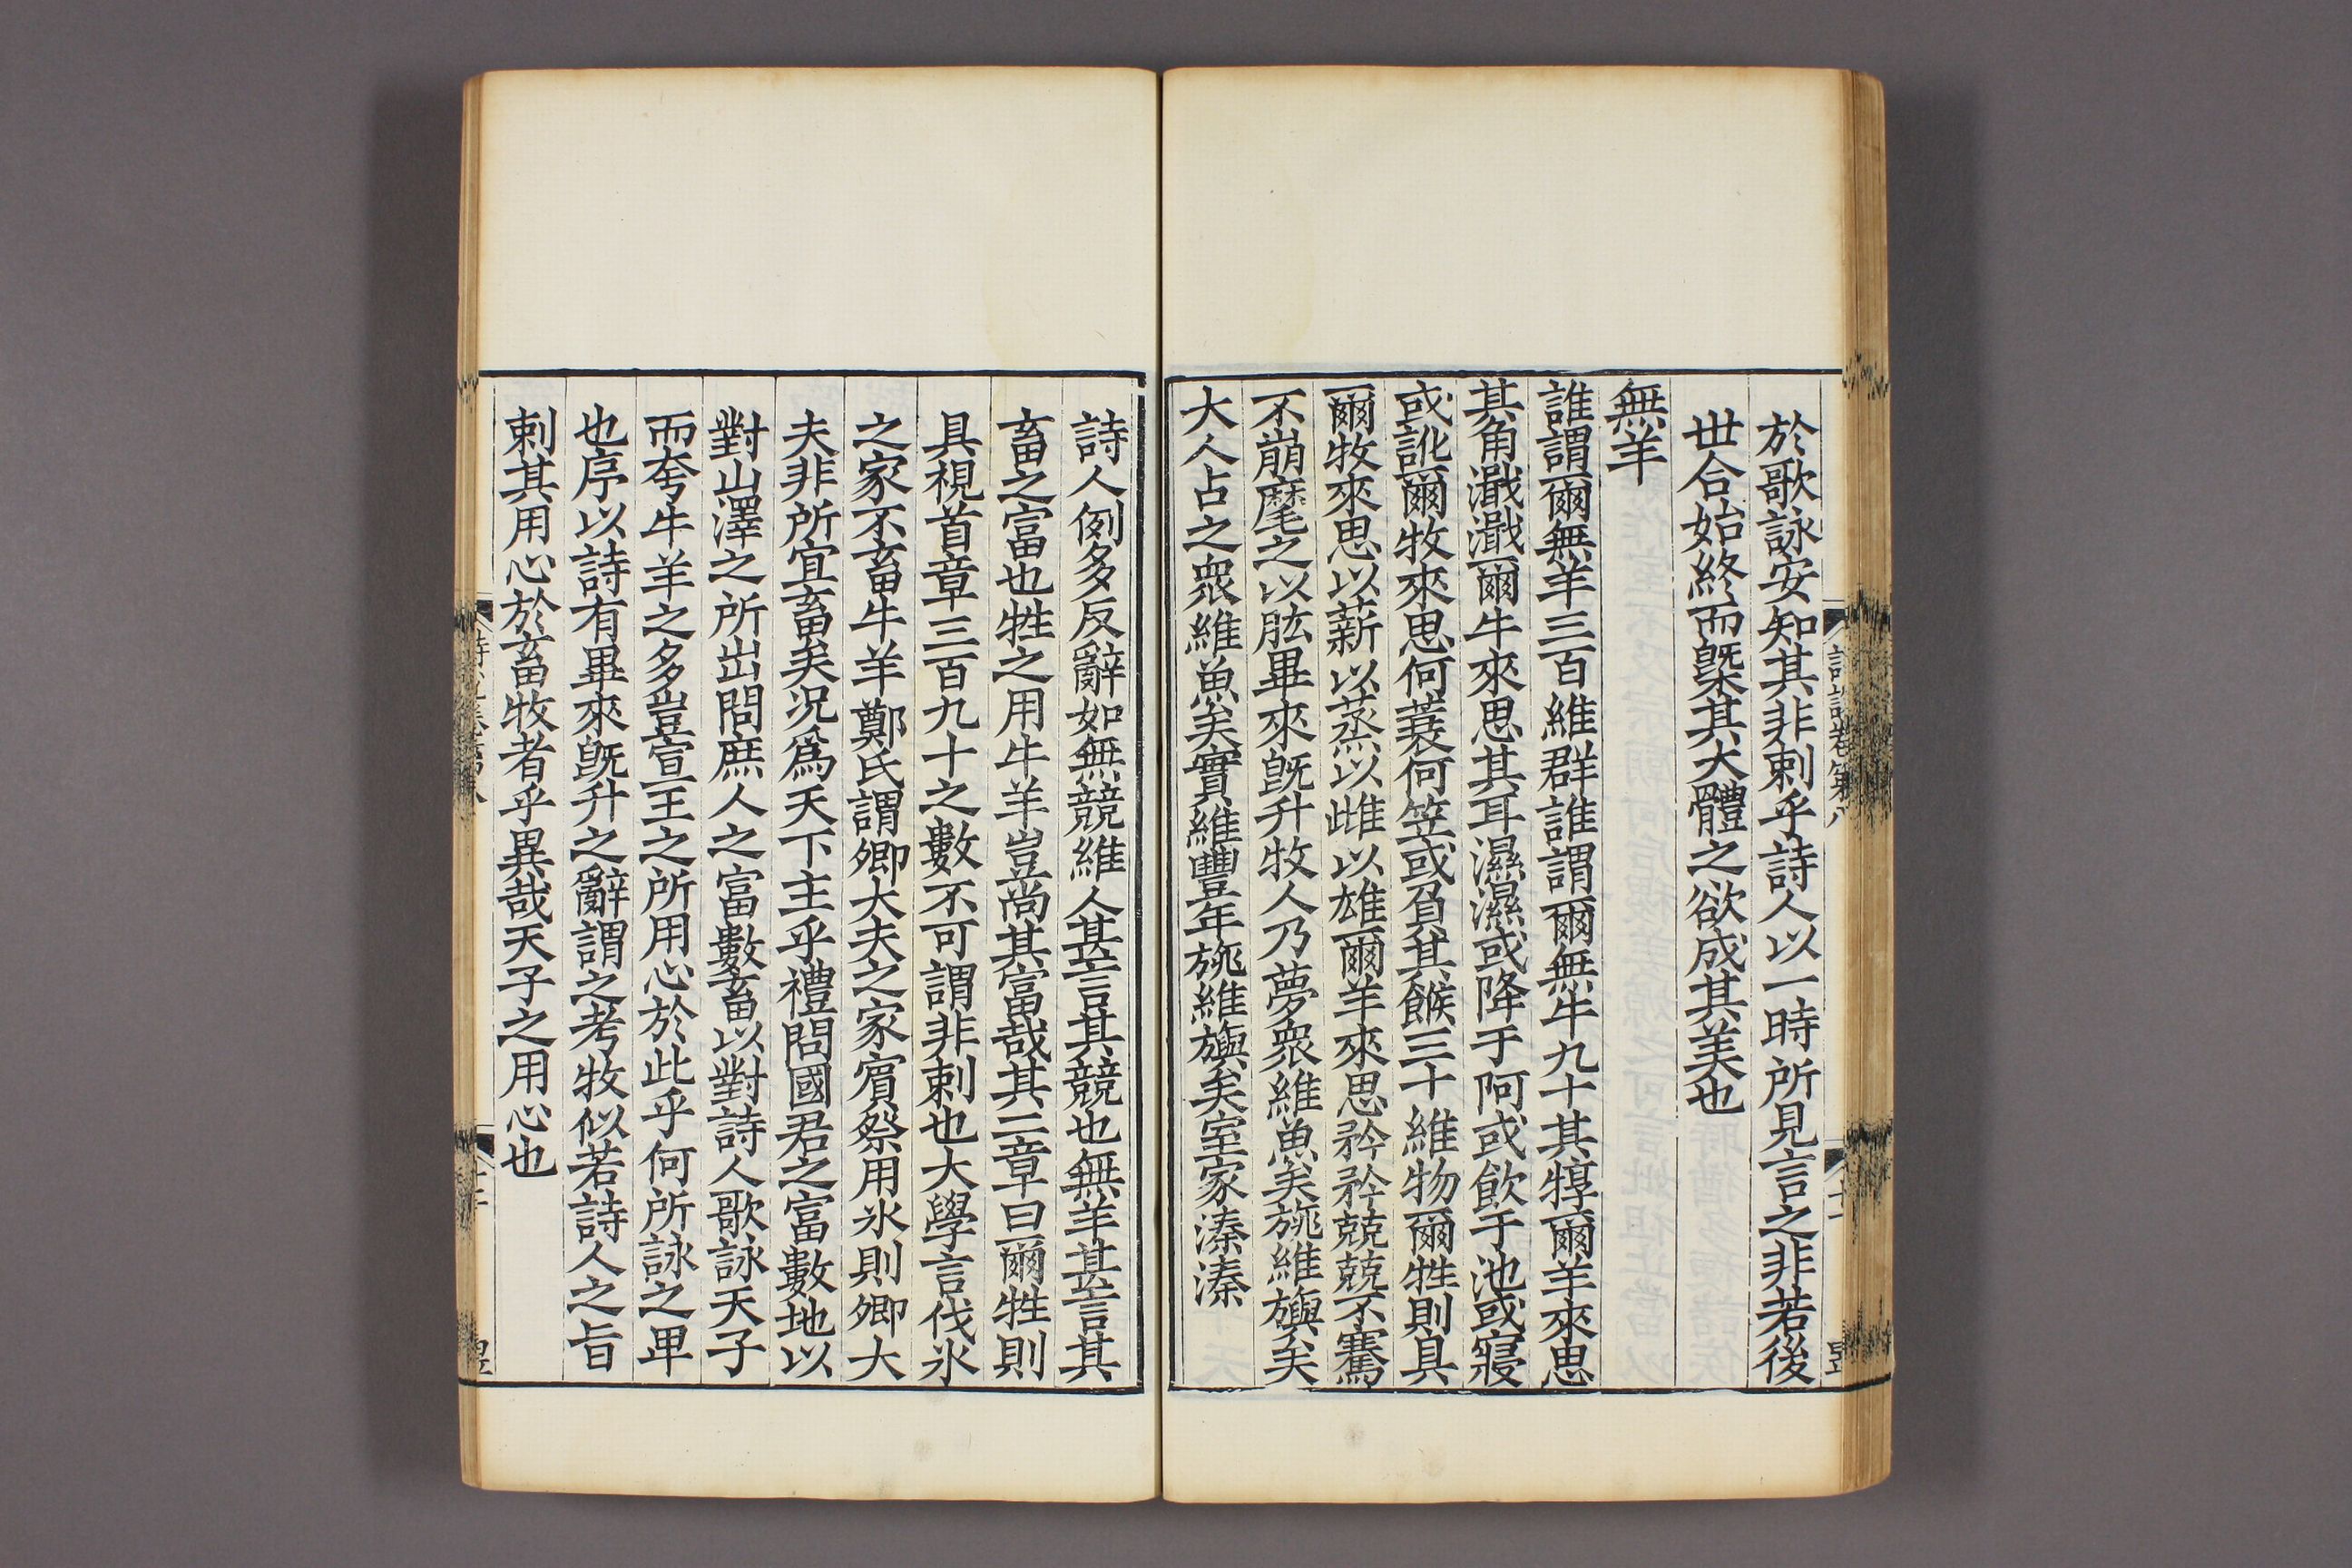 於歌詠安知其非刺乎詩人以一時所見言之非若後
世合始終而槩其大體之欲成其美也
無羊
誰謂爾無羊三百維群誰謂爾無牛九十其犉爾羊來思
其角濈濈爾牛來思其耳濕濕或降于阿或飲于池或寢
或訛爾牧來思何蓑何笠或負其餱三十維物爾牲則具
爾牧來思以薪以蒸以雌以雄爾羊來思矜矜兢兢不騫
不崩麾之以肱畢來旣升牧人乃夢衆維魚矣旐維旟矣
大人占之衆維魚矣實維豐年旐維旟矣室家溱溱
詩人例多反辭如無競維人甚言其競也無羊甚言其
畜之富也牲之用牛羊豈尚其富哉其二章曰爾牲則
具視首章三百九十之數不可謂非刺也大學言伐氷
之家不畜牛羊鄭氏謂卿大夫之家賔祭用氷則卿大
夫非所宜畜矣况爲天下主乎禮問國君之富數地以
對山澤之所出問庶人之富數畜以對詩人歌詠天子
而夸牛羊之多豈宣王之所用心於此乎何所詠之卑
也序以詩有畢來旣升之辭謂之考牧似若詩人之旨
刺其用心於畜牧者乎異哉天子之用心也